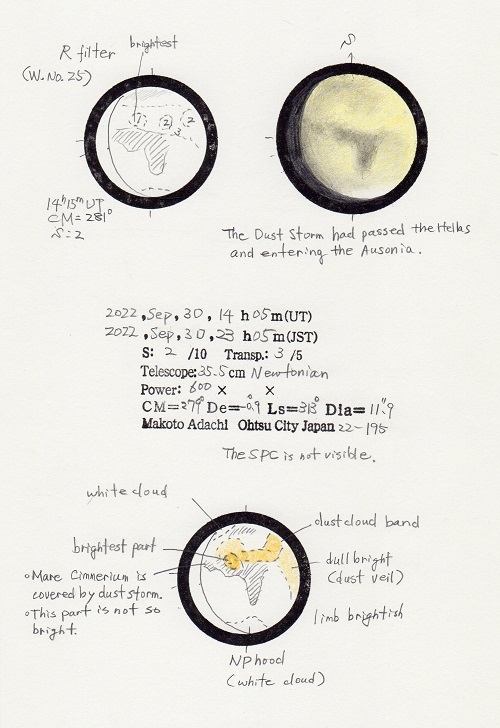 R filter
(W. No. 25)
brightest
1
2
2
3
S
14h15m UT
CM = 281°
S: 2
The Dust Storm had passed the Hellas
and entering the Ausonia.
2022, Sep, 30, 14 h 05 m (UT)
2022, Sep, 30, 23 h 05 m (JST)
S: 2 /10 Transp.: 3 /5
Telescope: 35.5 cm Newtonian
Power: 600 × ×
CM = 279° De = -0.9° Ls = 313° Dia = 11".9
Makoto Adachi Ohtsu City Japan 22-195
The SPC is not visible.
white cloud
dust cloud band
brightest part
dull bright
(dust veil)
○Mare Cimmerium is
covered by dust storm.
○This part is not so
bright.
limb brightish
NP hood
(white cloud)